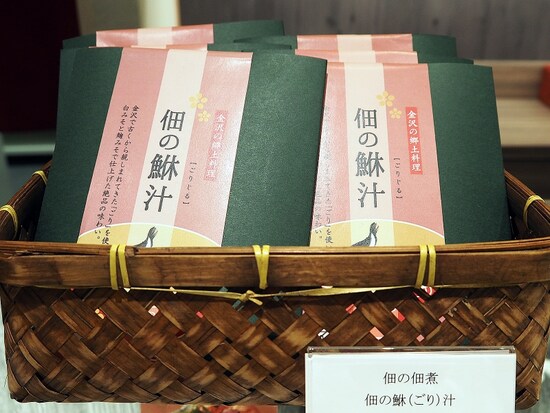 金沢の郷土料理
佃の鮴汁
【ごりじる】
金沢で古くから親しまれてきた「ごり」を使
白みそと麹みそで仕上げた絶品の味わい。
金沢の郷土料理
佃の鮴汁
【ごりじる】
佃の佃煮
佃の鮴(ごり)汁